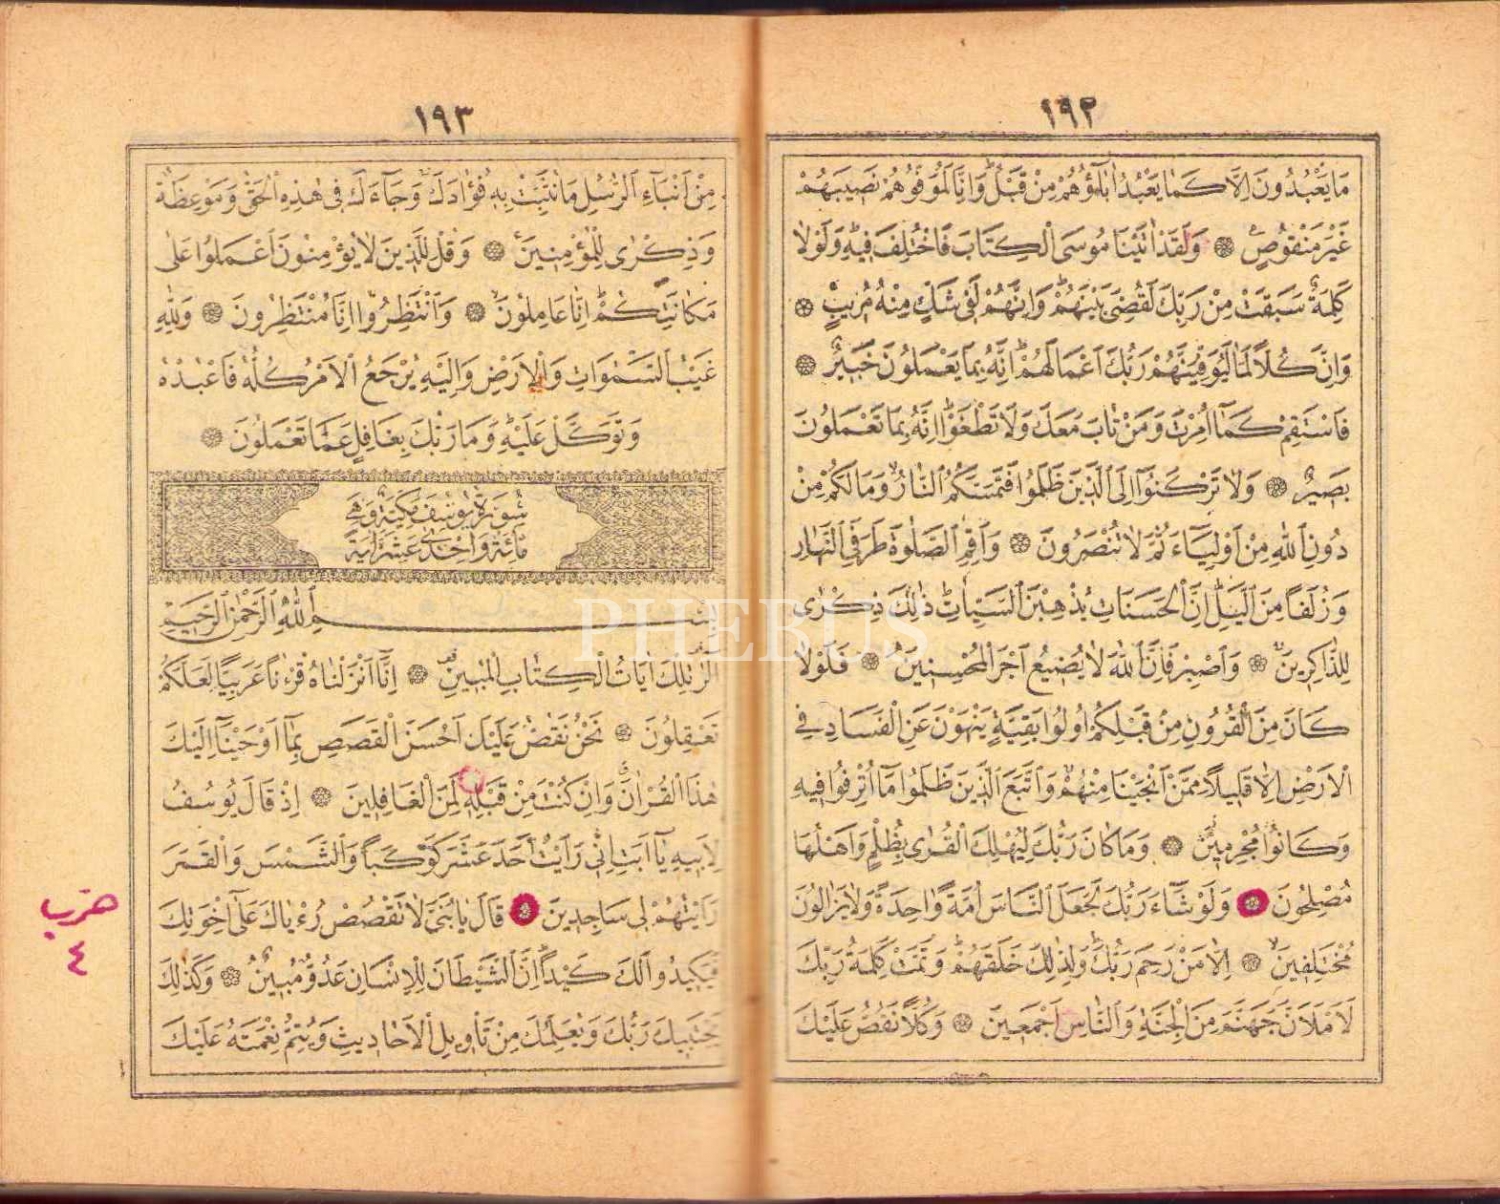 ١٩٢
مَا يَعْبُدُونَ اِلَّا كَمَا يَعْبُدُ اٰبَاؤُهُمْ مِنْ قَبْلُ وَاِنَّا لَمُوَفُّوهُمْ نَصِيبَهُمْ
غَيْرَ مَنْقُوصٍ ۞ وَلَقَدْ اٰتَيْنَا مُوسَى الْكِتَابَ فَاخْتُلِفَ فِيهِ وَلَوْلَا
كَلِمَةٌ سَبَقَتْ مِنْ رَبِّكَ لَقُضِىَ بَيْنَهُمْ وَاِنَّهُمْ لَفِى شَكٍّ مِنْهُ مُرِيبٍ ۞
وَاِنَّ كُلًّا لَمَّا لَيُوَفِّيَنَّهُمْ رَبُّكَ اَعْمَالَهُمْ اِنَّهُ بِمَا يَعْمَلُونَ خَبِيرٌ ۞
فَاسْتَقِمْ كَمَا اُمِرْتَ وَمَنْ تَابَ مَعَكَ وَلَا تَطْغَوْا اِنَّهُ بِمَا تَعْمَلُونَ
بَصِيرٌ ۞ وَلَا تَرْكَنُوا اِلَى الَّذِينَ ظَلَمُوا فَتَمَسَّكُمُ النَّارُ وَمَا لَكُمْ مِنْ
دُونِ اللّٰهِ مِنْ اَوْلِيَاءَ ثُمَّ لَا تُنْصَرُونَ ۞ وَاَقِمِ الصَّلٰوةَ طَرَفَىِ النَّهَارِ
وَزُلَفًا مِنَ الَّيْلِ اِنَّ الْحَسَنَاتِ يُذْهِبْنَ السَّيِّئَاتِ ذٰلِكَ ذِكْرٰى
لِلذَّاكِرِينَ ۞ وَاصْبِرْ فَاِنَّ اللّٰهَ لَا يُضِيعُ اَجْرَ الْمُحْسِنِينَ ۞ فَلَوْلَا
كَانَ مِنَ الْقُرُونِ مِنْ قَبْلِكُمْ اُولُوا بَقِيَّةٍ يَنْهَوْنَ عَنِ الْفَسَادِ فِى
الْاَرْضِ اِلَّا قَلِيلًا مِمَّنْ اَنْجَيْنَا مِنْهُمْ وَاتَّبَعَ الَّذِينَ ظَلَمُوا مَا اُتْرِفُوا فِيهِ
وَكَانُوا مُجْرِمِينَ ۞ وَمَا كَانَ رَبُّكَ لِيُهْلِكَ الْقُرٰى بِظُلْمٍ وَاَهْلُهَا
مُصْلِحُونَ ۞ وَلَوْ شَاءَ رَبُّكَ لَجَعَلَ النَّاسَ اُمَّةً وَاحِدَةً وَلَا يَزَالُونَ
مُخْتَلِفِينَ ۞ اِلَّا مَنْ رَحِمَ رَبُّكَ وَلِذٰلِكَ خَلَقَهُمْ وَتَمَّتْ كَلِمَةُ رَبِّكَ
لَاَمْلَاَنَّ جَهَنَّمَ مِنَ الْجِنَّةِ وَالنَّاسِ اَجْمَعِينَ ۞ وَكُلًّا نَقُصُّ عَلَيْكَ
١٩٣
مِنْ اَنْبَاءِ الرُّسُلِ مَا نُثَبِّتُ بِهِ فُؤَادَكَ وَجَاءَكَ فِى هٰذِهِ الْحَقُّ وَمَوْعِظَةٌ
وَذِكْرٰى لِلْمُؤْمِنِينَ ۞ وَقُلْ لِلَّذِينَ لَا يُؤْمِنُونَ اعْمَلُوا عَلٰى
مَكَانَتِكُمْ اِنَّا عَامِلُونَ ۞ وَانْتَظِرُوا اِنَّا مُنْتَظِرُونَ ۞ وَلِلّٰهِ
غَيْبُ السَّمٰوَاتِ وَالْاَرْضِ وَاِلَيْهِ يُرْجَعُ الْاَمْرُ كُلُّهُ فَاعْبُدْهُ
وَتَوَكَّلْ عَلَيْهِ وَمَا رَبُّكَ بِغَافِلٍ عَمَّا تَعْمَلُونَ ۞
سُورَةُ يُوسُفَ مَكِّيَّةٌ وَهِىَ
مِائَةٌ وَاِحْدٰى عَشَرَ اٰيَةً
بِسْمِ اللّٰهِ الرَّحْمٰنِ الرَّحِيمِ
الٓرٰ تِلْكَ اٰيَاتُ الْكِتَابِ الْمُبِينِ ۞ اِنَّا اَنْزَلْنَاهُ قُرْاٰنًا عَرَبِيًّا لَعَلَّكُمْ
تَعْقِلُونَ ۞ نَحْنُ نَقُصُّ عَلَيْكَ اَحْسَنَ الْقَصَصِ بِمَا اَوْحَيْنَا اِلَيْكَ
هٰذَا الْقُرْاٰنَ وَاِنْ كُنْتَ مِنْ قَبْلِهِ لَمِنَ الْغَافِلِينَ ۞ اِذْ قَالَ يُوسُفُ
لِاَبِيهِ يَا اَبَتِ اِنِّى رَاَيْتُ اَحَدَ عَشَرَ كَوْكَبًا وَالشَّمْسَ وَالْقَمَرَ
رَاَيْتُهُمْ لِى سَاجِدِينَ ۞ قَالَ يَا بُنَىَّ لَا تَقْصُصْ رُءْيَاكَ عَلٰى اِخْوَتِكَ
فَيَكِيدُوا لَكَ كَيْدًا اِنَّ الشَّيْطَانَ لِلْاِنْسَانِ عَدُوٌّ مُبِينٌ ۞ وَكَذٰلِكَ
يَجْتَبِيكَ رَبُّكَ وَيُعَلِّمُكَ مِنْ تَأْوِيلِ الْاَحَادِيثِ وَيُتِمُّ نِعْمَتَهُ عَلَيْكَ
حزب
٤
PHEBUS